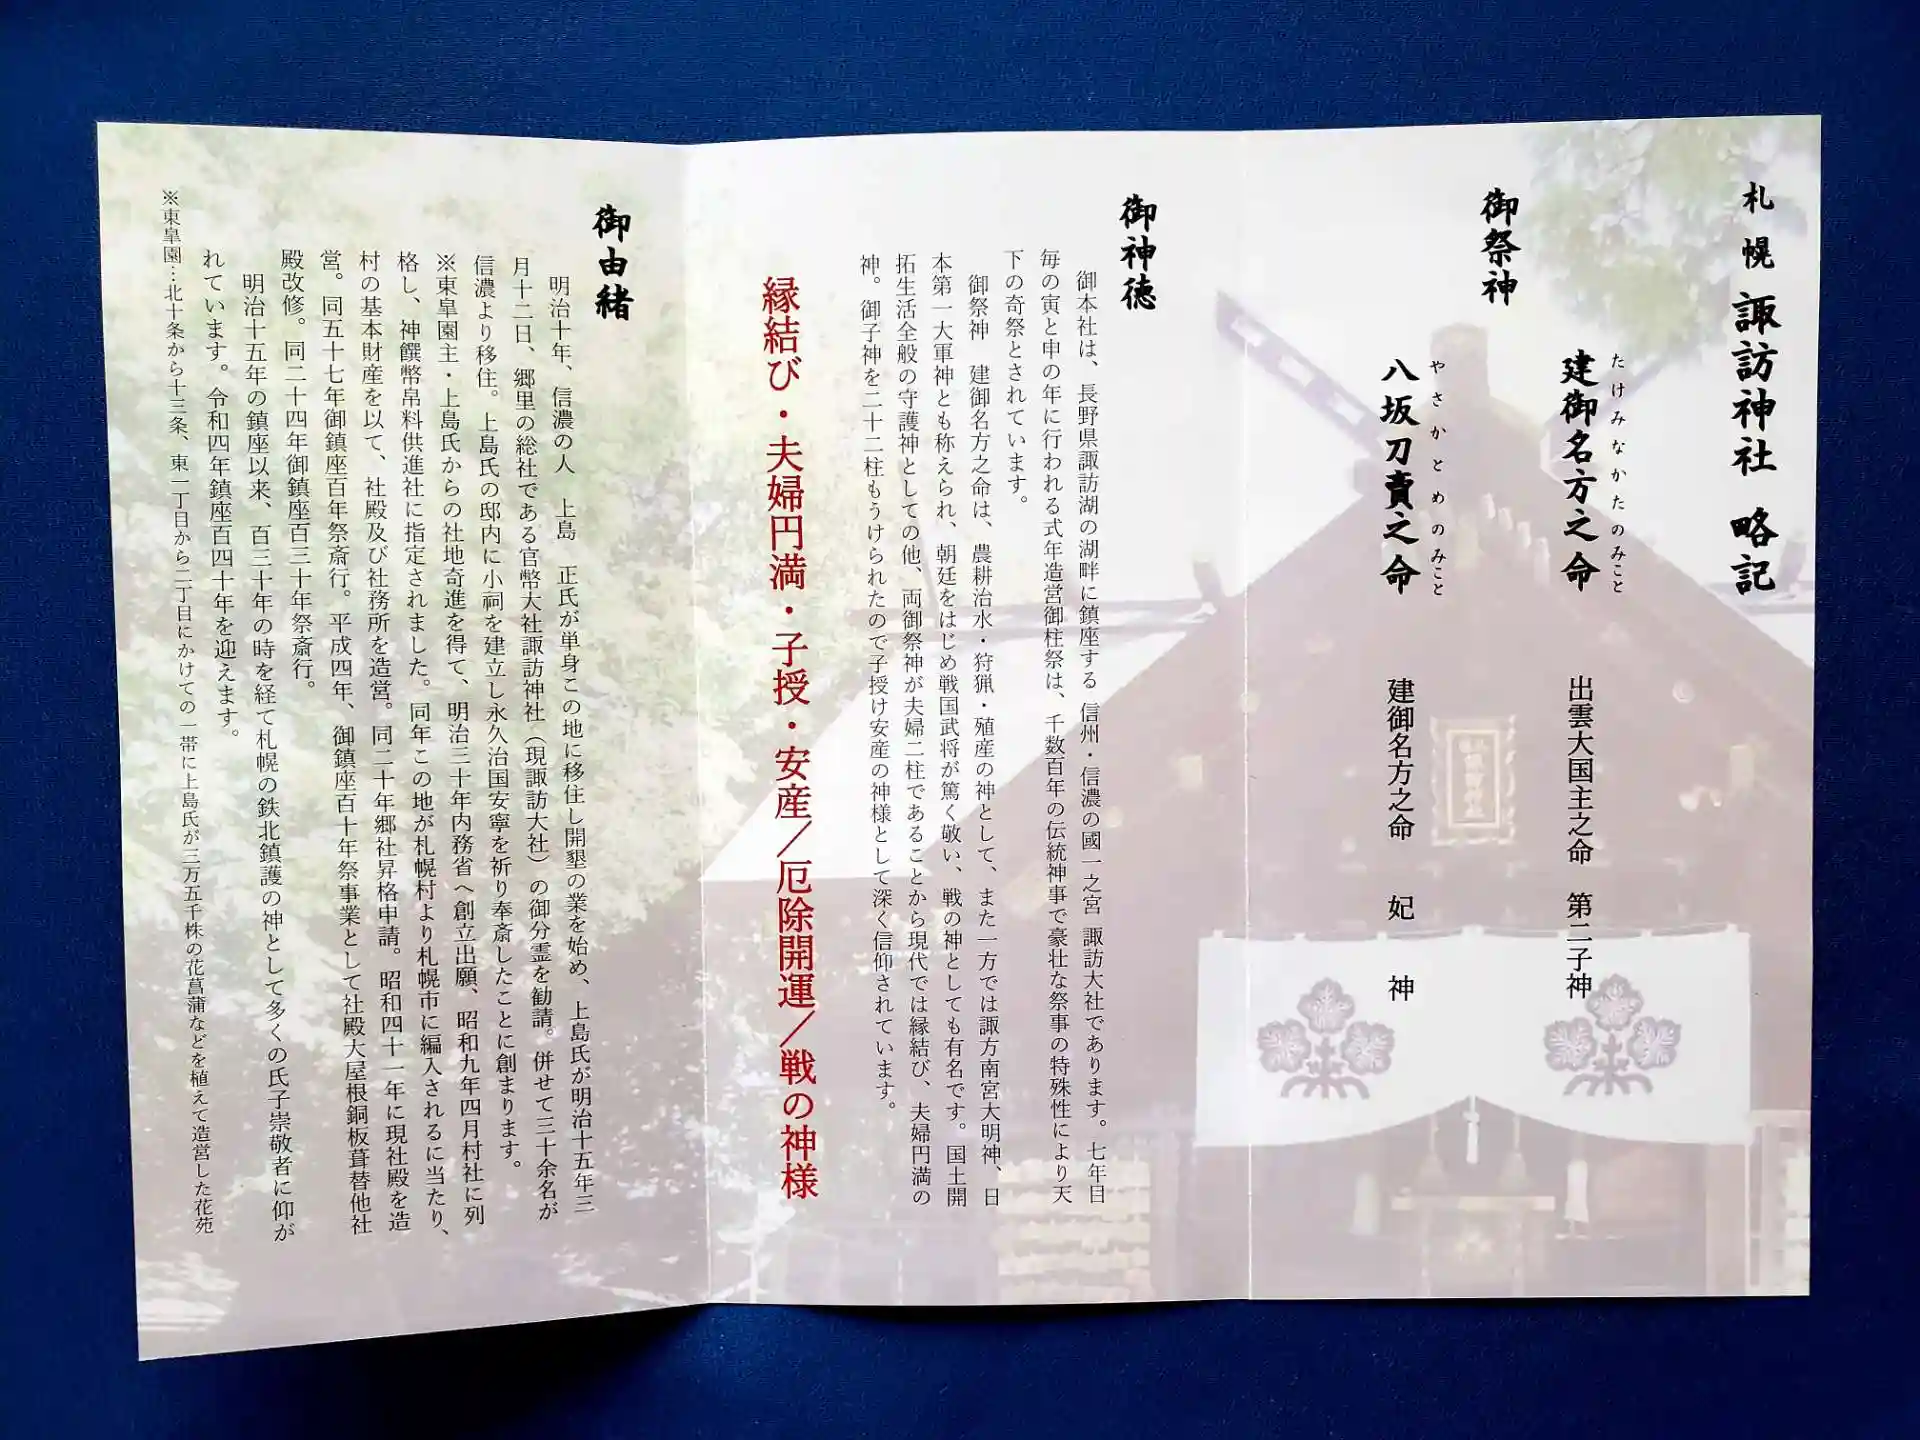 札幌 諏訪神社 略記
御祭神
たけみなかたのみこと
建御名方之命 出雲大国主之命 第二子神
やさかとめのみこと
八坂刀賣之命 建御名方之命 妃 神
御神徳
御本社は、長野県諏訪湖の湖畔に鎮座する 信州・信濃の國一之宮 諏訪大社であります。七年目
毎の寅と申の年に行われる式年造営御柱祭は、千数百年の伝統神事で豪壮な祭事の特殊性により天
下の奇祭とされています。
御祭神 建御名方之命は、農耕治水・狩猟・殖産の神として、また一方では諏方南宮大明神、日
本第一大軍神とも称えられ、朝廷をはじめ戦国武将が篤く敬い、戦の神としても有名です。国土開
拓生活全般の守護神としての他、両御祭神が夫婦二柱であることから現代では縁結び、夫婦円満の
神。御子神を二十二柱もうけられたので子授け安産の神様として深く信仰されています。
縁結び・夫婦円満・子授・安産／厄除開運／戦の神様
御由緒
明治十年、信濃の人 上島 正氏が単身この地に移住し開墾の業を始め、上島氏が明治十五年三
月十二日、郷里の総社である官幣大社諏訪神社（現諏訪大社）の御分霊を勧請。併せて三十余名が
信濃より移住。上島氏の邸内に小祠を建立し永久治国安寧を祈り奉斎したことに創まります。
※東皐園主・上島氏からの社地奇進を得て、明治三十年内務省へ創立出願、昭和九年四月村社に列
格し、神饌幣帛料供進社に指定されました。同年この地が札幌村より札幌市に編入されるに当たり、
村の基本財産を以て、社殿及び社務所を造営。同二十年郷社昇格申請。昭和四十一年に現社殿を造
営。同五十七年御鎮座百年祭斎行。平成四年、御鎮座百十年祭事業として社殿大屋根銅板葺替他社
殿改修。同二十四年御鎮座百三十年祭斎行。
明治十五年の鎮座以来、百三十年の時を経て札幌の鉄北鎮護の神として多くの氏子崇敬者に仰が
れています。令和四年鎮座百四十年を迎えます。
※東皐園…北十条から十三条、東一丁目から二丁目にかけての一帯に上島氏が三万五千株の花菖蒲などを植えて造営した花苑